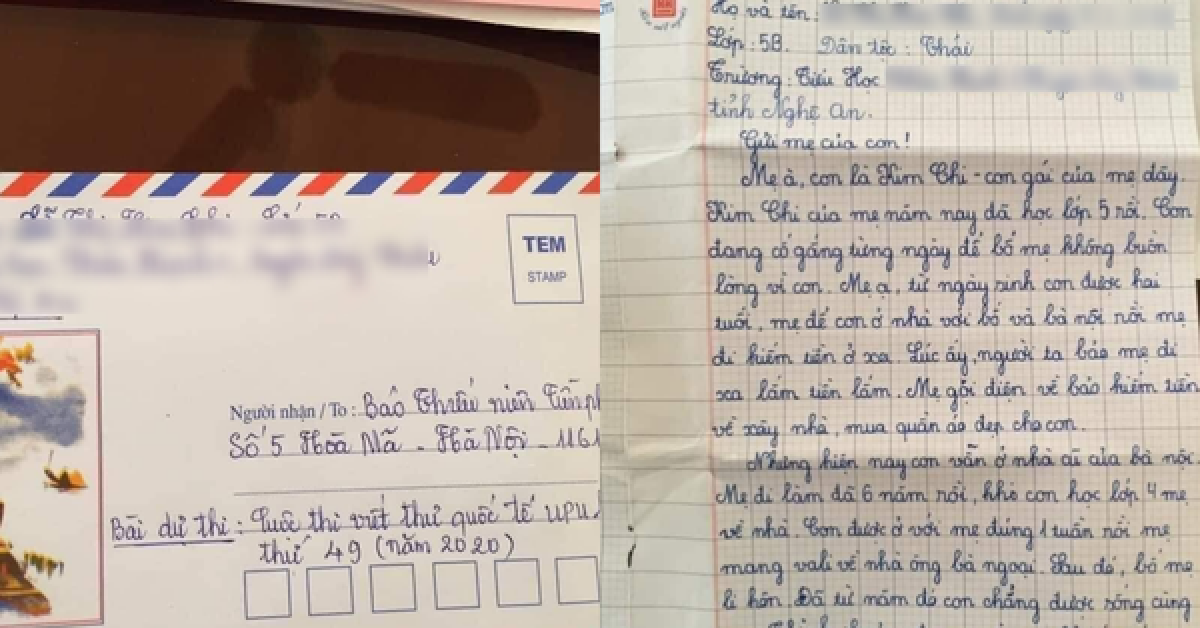 TEM
STAMP
Người nhận / To : Báo Thiếu niên Tiền
Số 5 Hoà Mã - Hà Nội - 1161
Bài dự thi : Cuộc thi viết thư quốc tế UPU
thứ 49 (năm 2020)
Họ và tên :
Lớp : 5B. Dân tộc : Thái
Trường : Tiểu Học
tỉnh Nghệ An.
Gửi mẹ của con!
Mẹ à, con là Kim Chi - con gái của mẹ đây.
Kim Chi của mẹ năm nay đã học lớp 5 rồi. Con
đang cố gắng từng ngày để bố mẹ không buồn
lòng vì con. Mẹ ạ, từ ngày sinh con được hai
tuổi, mẹ để con ở nhà với bố và bà nội rồi mẹ
đi kiếm tiền ở xa. Lúc ấy, người ta bảo mẹ đi
xa lắm tiền lắm. Mẹ gọi điện về bảo kiếm tiền
về xây nhà, mua quần áo đẹp cho con.
Nhưng hiện nay con vẫn ở nhà cũ của bà nội.
Mẹ đi làm đã 6 năm rồi, khi con học lớp 4 mẹ
về nhà. Con được ở với mẹ đúng 1 tuần rồi mẹ
mang vali về nhà ông bà ngoại. Sau đó, bố mẹ
li hôn. Đã từ năm đó con chẳng được sống cùng